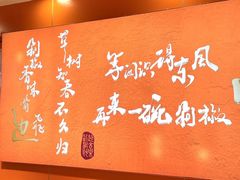 草树知春不久归
剁椒香味
等闲识得东风
再来一碗剁椒